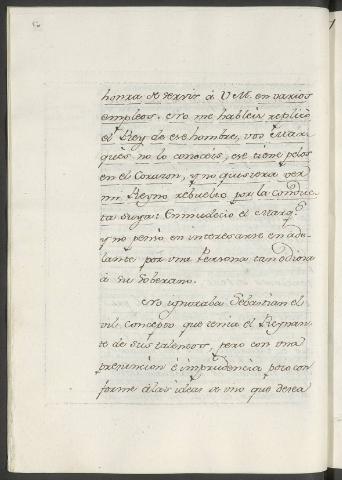 honra de servir à V M. en varios
empleos. No me hableis replicò
el Rey de ese hombre, vos Mar-
quès no lo conoceis, ese tiene pelos
en el Corazon, y no quisiera ver
mi Reyno rebuelto por la conduc-
ta suya: Enmudeciò el Marq.s
y no pensò en interesarse en ade-
lante por una Persona tan odiosa
à su Soberano.
No ignoraba Sebastian el
vil concepto que tenia el Reynan-
te de sus talentos, pero con una
presuncion è imprudencia poco con-
forme à las ideas de uno que desea